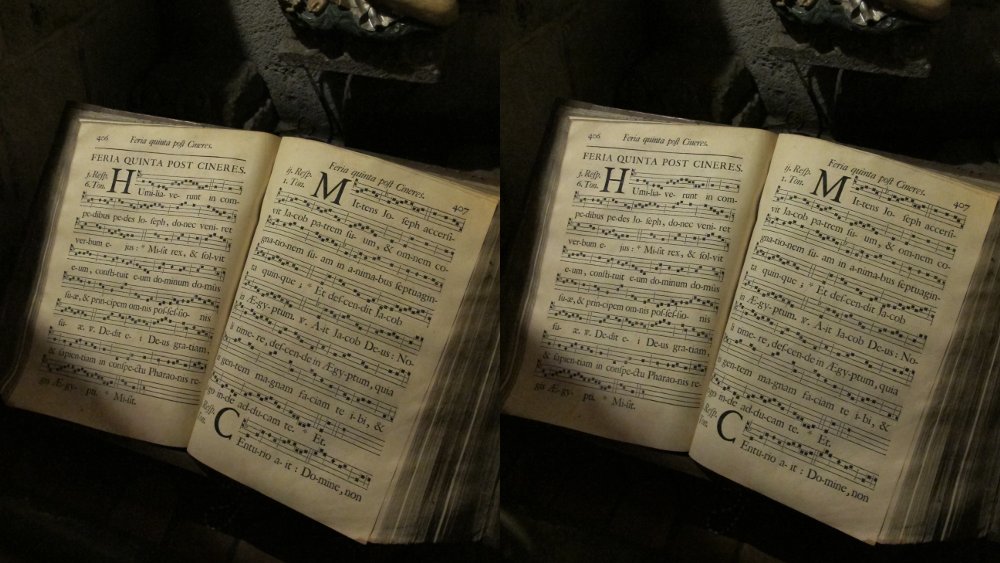 406 Feria quinta post Cineres.
FERIA QUINTA POST CINERES.
3. Resp.
6. Ton.
HUmi-lia- ve- runt in com-
pe-dibus pe-des Io- seph, do-nec veni- ret
ver-bum e- jus; * Mi-sit rex, & sol-vit
e-um, consti-tuit e-um do-minum do-mûs
su-æ, & prin-cipem om-nis pos-ses-sio- nis
su- æ. ℣. De-dit e- i De-us gra-tiam,
& sapien-tiam in conspe-ctu Pharao-nis re-
gis Æ-gy- pti. * Mi-sit.
Feria quinta post Cineres. 407
ij. Resp.
1. Ton.
MIt-tens Io- seph accersi-
vit Ia-cob pa-trem su- um, & om-nem co-
gna-tio-nem su- am in a-nima-bus septuagin-
ta quin-que ; * Et des-cen-dit Ia-cob
in Æ-gy-ptum. ℣. A-it Ia-cob De-us : No-
li time- re, des-cen-de in Æ-gy-ptum, quia
gen-tem ma-gnam fa-ciam te i-bi, &
in-de ad-du-cam te. * Et.
Resp.
CEntu-rio a- it : Do-mine, non
406 Feria quinta post Cineres.
FERIA QUINTA POST CINERES.
3. Resp.
6. Ton.
HUmi-lia- ve- runt in com-
pe-dibus pe-des Io- seph, do-nec veni- ret
ver-bum e- jus; * Mi-sit rex, & sol-vit
e-um, consti-tuit e-um do-minum do-mûs
su-æ, & prin-cipem om-nis pos-ses-sio- nis
su- æ. ℣. De-dit e- i De-us gra-tiam,
& sapien-tiam in conspe-ctu Pharao-nis re-
gis Æ-gy- pti. * Mi-sit.
Feria quinta post Cineres. 407
ij. Resp.
1. Ton.
MIt-tens Io- seph accersi-
vit Ia-cob pa-trem su- um, & om-nem co-
gna-tio-nem su- am in a-nima-bus septuagin-
ta quin-que ; * Et des-cen-dit Ia-cob
in Æ-gy-ptum. ℣. A-it Ia-cob De-us : No-
li time- re, des-cen-de in Æ-gy-ptum, quia
gen-tem ma-gnam fa-ciam te i-bi, &
in-de ad-du-cam te. * Et.
Resp.
CEntu-rio a- it : Do-mine, non